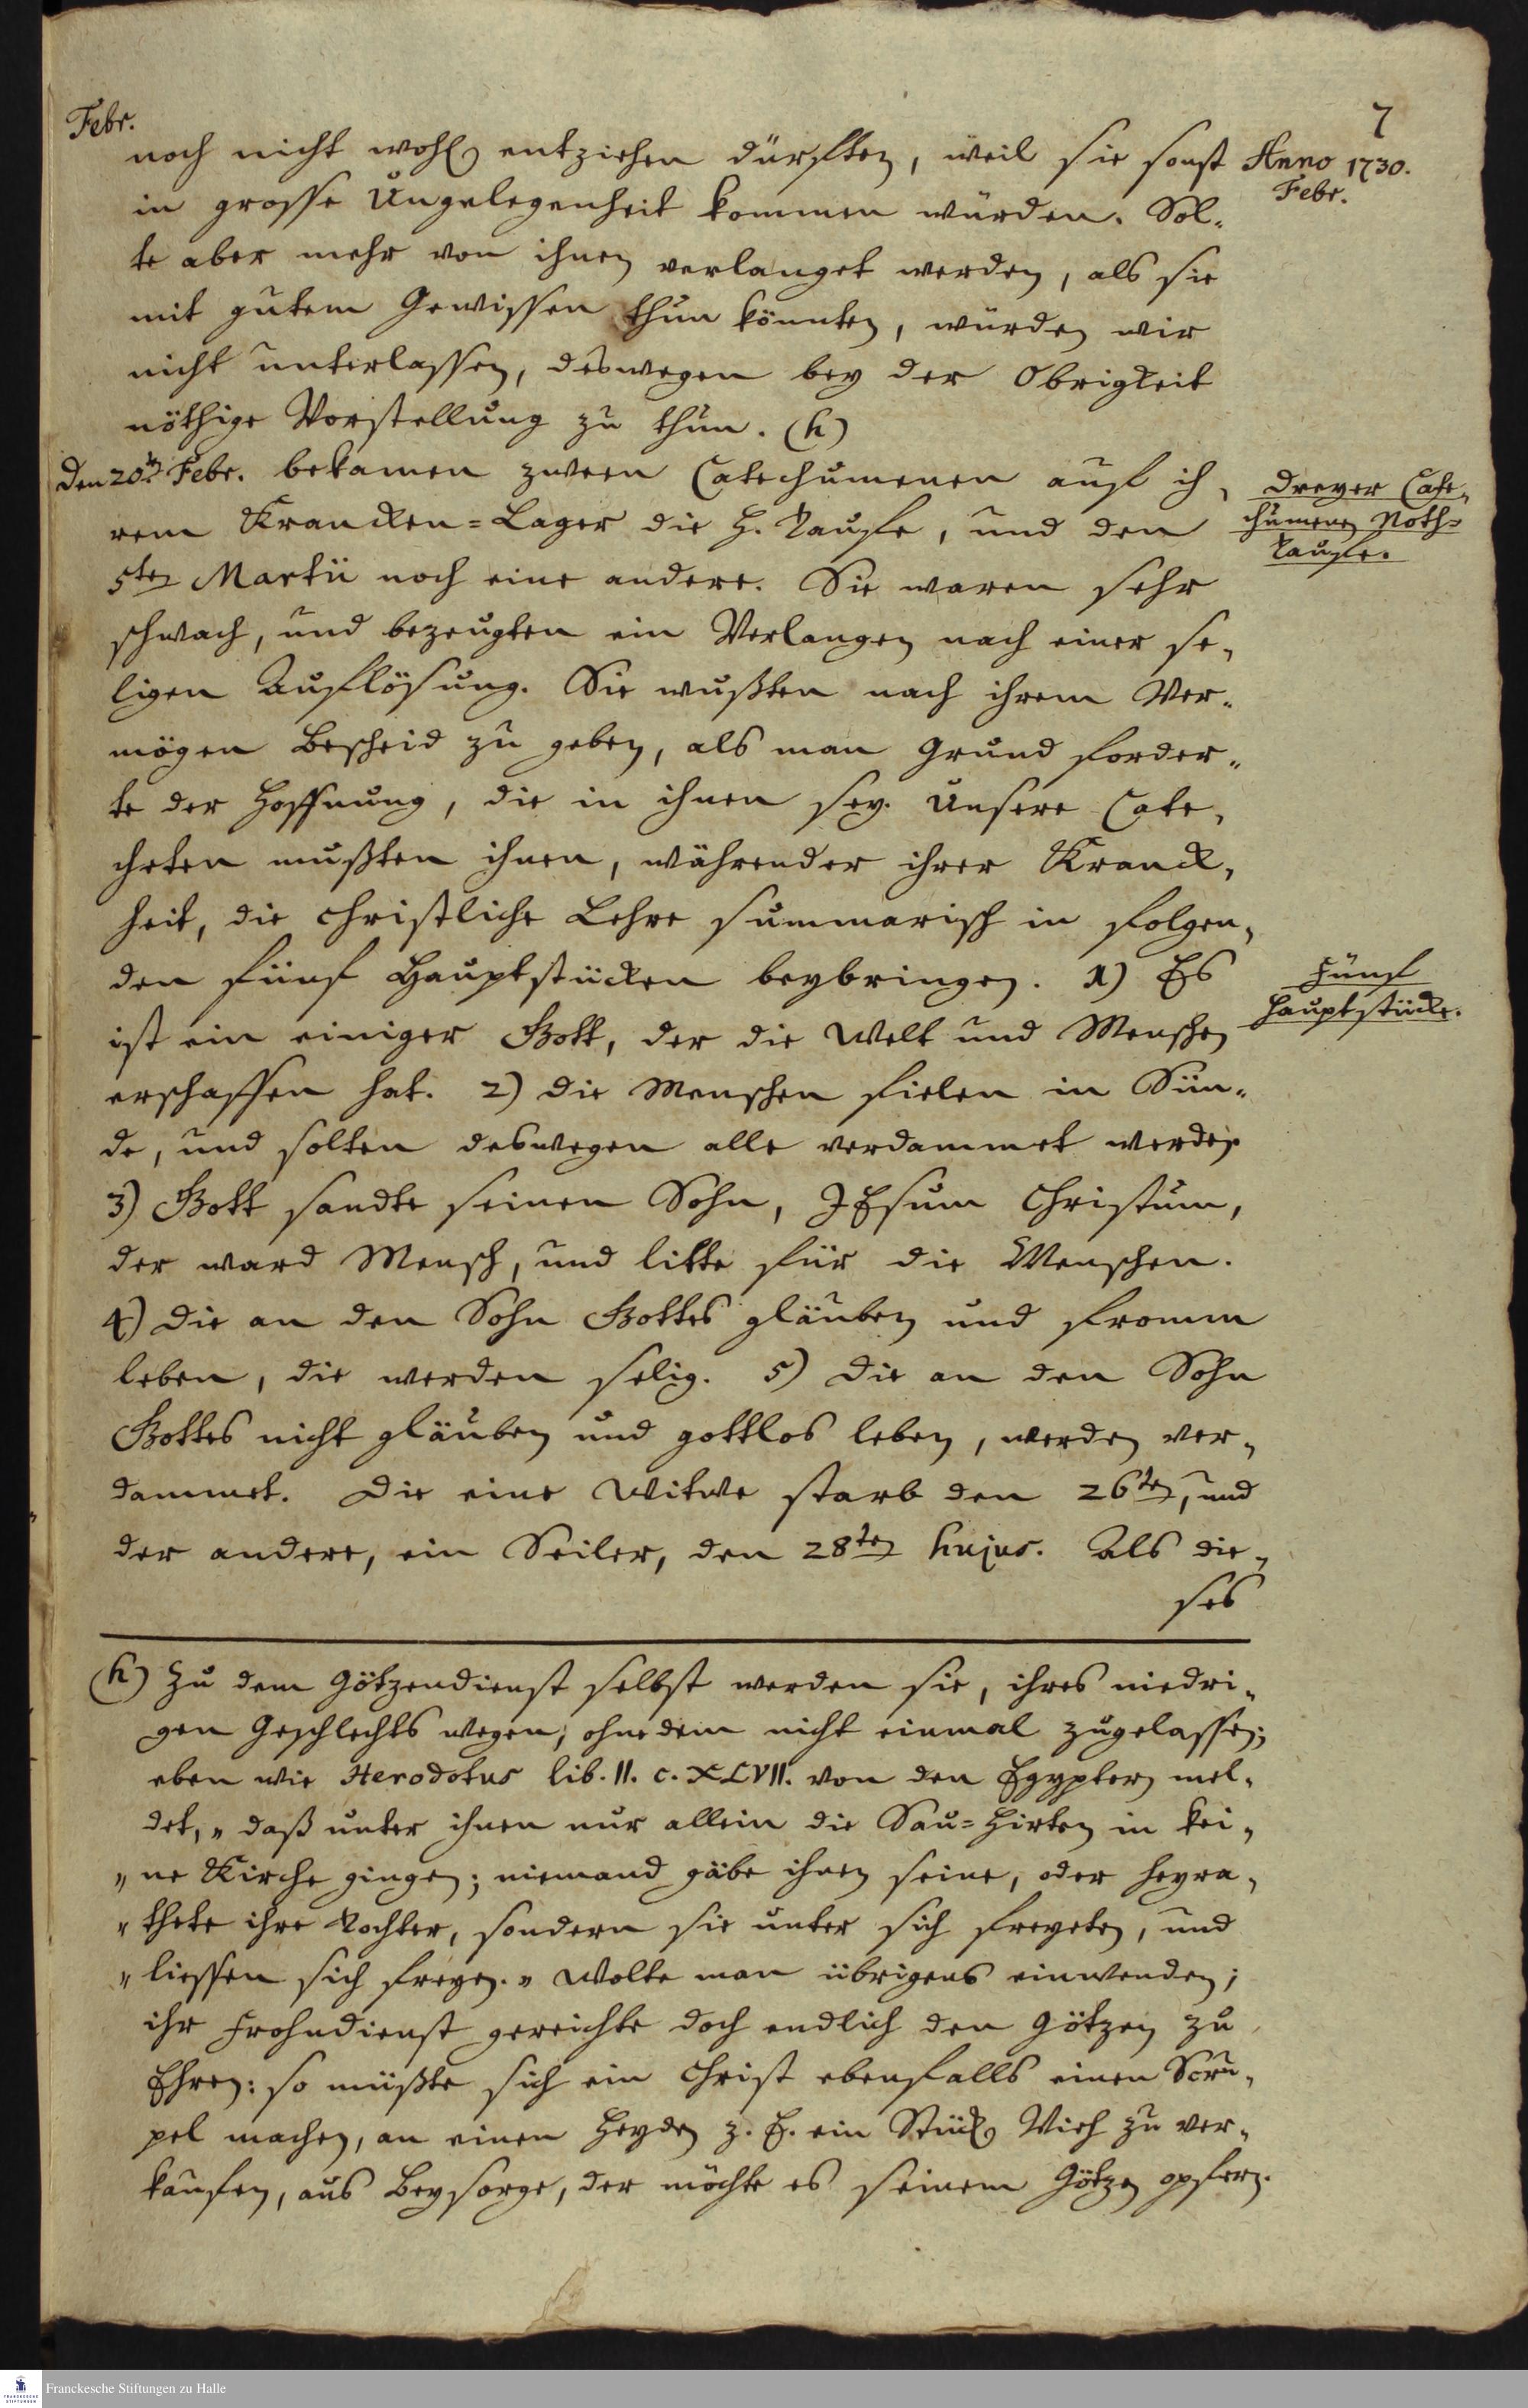 Febr.
7
noch nicht wohl entziehen dürften, weil sie sonst
Anno 1730.
Febr.
in grosse Ungelegenheit kommen würden. Sol-
te aber mehr von ihnen verlanget werden, als sie
mit gutem Gewissen thun könnten, würden wir
nicht unterlassen, deswegen bey der Obrigkeit
nöthige Vorstellung zu thun. (h)
Den 20ten Febr. bekamen zween Catechumenen auf ih-
Dreyer Cate-
chumenen Noth-
Taufe.
rem Krancken-Lager die H. Taufe, und den
5ten Martii noch eine andere. Sie waren sehr
schwach, und bezeugten ein Verlangen nach einer se-
ligen Auflösung. Sie wußten nach ihrem Ver-
mögen Bescheid zu geben, als man Grund forder-
te der Hoffnung, die in ihnen sey. Unsere Cate-
cheten mußten ihnen, währender ihrer Kranck-
heit, die christliche Lehre summarisch in folgen-
den fünf Hauptstücken beybringen. 1) Es
Fünf
Hauptstücke.
ist ein einiger Gott, der die Welt und Menschen
erschaffen hat. 2) die Menschen fielen in Sün-
de, und solten deswegen alle verdammet werden
3) Gott sandte seinen Sohn, JEsum Christum,
der ward Mensch, und litte für die Menschen.
4) Die an den Sohn Gottes gläuben und fromm
leben, die werden selig. 5) Die an den Sohn
Gottes nicht gläuben und gottlos leben, werden ver-
dammet. Die eine Witwe starb den 26ten, und
der andere, ein Seiler, den 28ten hujus. Als die-
ses
(h) Zu dem Götzendienst selbst werden sie, ihres niedri-
gen Geschlechts wegen, ohnedem nicht einmal zugelassen;
eben wie Herodotus lib. II. c. XLVII. von den Egyptern mel-
det, „daß unter ihnen nur allein die Sau-Hirten in kei-
„ne Kirche gingen; niemand gäbe ihnen seine, oder heyra-
„thete ihre Tochter, sondern sie unter sich freyeten, und
„liessen sich freyen.„ Wolte man übrigens einwenden;
ihr Frohndienst gereichte doch endlich den Götzen zu
Ehren: so müßte sich ein Christ ebenfalls einen Scru-
pel machen, an einen Heyden z. E. ein Stück Vieh zu ver-
kaufen, aus Beysorge, der möchte es seinem Götzen opfern.
Franckesche Stiftungen zu Halle